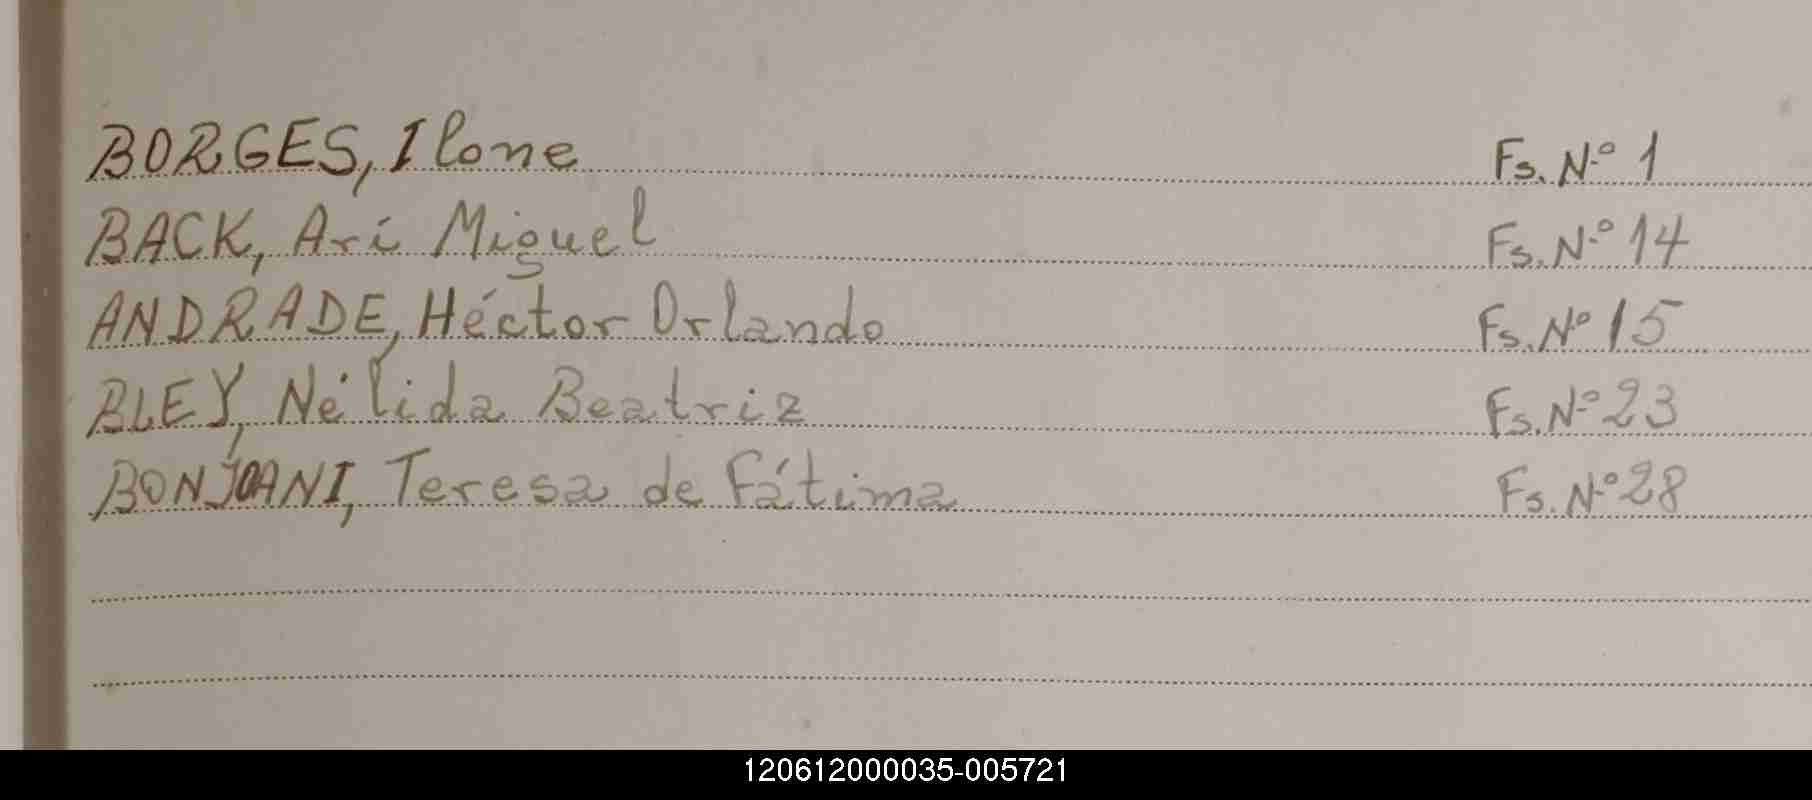 BORGES, Ilone Fs. N.º 1
BACK, Ari Miguel Fs. N.º 14
ANDRADE, Héctor Orlando Fs. Nº 15
BLEY, Nélida Beatriz Fs. N.º 23
BONJOANI, Teresa de Fátima Fs. N.º 28
120612000035-005721